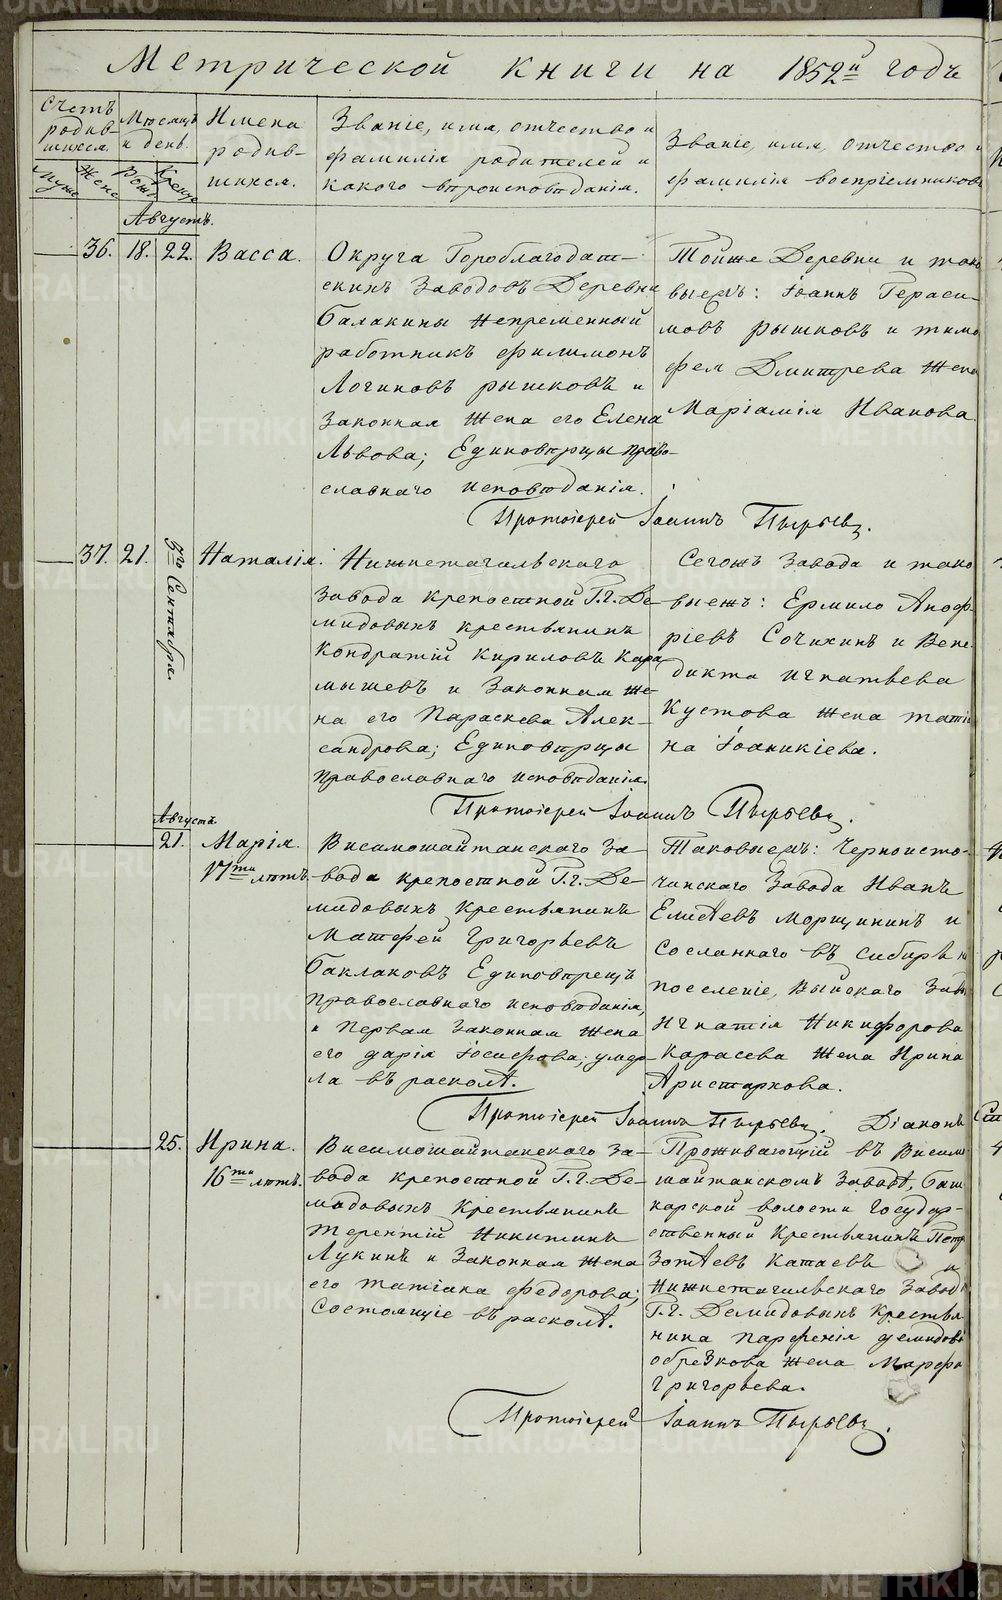 Метрической книги на 1852й годъ
Счетъ родив-шихся.
Муже Женс
Месяцъ и день.
Рожд Креще
Имена родив-шихся.
Званіе, имя, отчество и
фамилія родителей и
какого вѣроисповѣданія.
Званіе, имя, отчество и
фамилія воспріемниковъ
Августъ.
36. 18. 22. Васса.
Округа Гороблагодат-
скихъ Заводовъ Деревни
Балакины Непременный
работникъ Филимонъ
Логиновъ рышковъ и
Законная Жена его Елена
Львова; Единовѣрцы право-
славнаго исповѣданія.
Тойже Деревни и тако
выежъ: Іоаннъ Гераси-
мовъ рышковъ и тимо
фея Дмитрева Жена
Маріамія Иванова
Протоіерей Іоаннъ Пырьевъ.
37. 21. 5го Сентября. Наталія.
Нижнетагильскаго
Завода крепостной Г.г. Де-
мидовыхъ крестьянинъ
Кондратій Кириловъ Кара
мышевъ и Законная же-
на его Параскева Алек-
сандрова; Единовѣрцы
православнаго исповѣданія.
Сегожъ Завода и тако
выежъ: Ермило Аноф-
ріевъ Сочихинъ и Вене-
дикта игнатьева
Кустова Жена татія
на Іоаникіева.
Протоіерей Іоаннъ Пырьевъ.
Августа.
21. Марія.
17ти лѣтъ.
Висимошайтанскаго За-
вода крепостной Г.г. Де-
мидовыхъ Крестьянинъ
Матфей Григорьевъ
Баклаковъ Единовѣрецъ
Православнаго исповѣданія,
и Первая Законная Жена
его дарія Іосифова; умер-
ла въ расколѣ.
Таковыежъ: Черноисто-
чинскаго Завода Иванъ
Елисѣевъ Морщининъ и
Сосланнаго въ Сибирь на
поселеніе, Выйскаго Заво
Игнатія Никифорова
Карасева Жена Ирина
Аристархова.
Протоіерей Іоаннъ Пырьевъ. Діаконъ
25. Ирина.
16ти лѣтъ.
Висимошайтанскаго За-
вода крепостной Г.г. Де-
мидовыхъ Крестьянинъ
Терентій Никитинъ
Лукинъ и Законная Жена
его татіана федорова;
Состоящіе въ расколѣ.
Проживающій въ Висимо
шайтанскомъ Заводѣ, Баш
карской волости Государ-
ственный Крестьянинъ Петр
Зотѣевъ Катаевъ и
Нижнетагильскаго Завод
Г.г. Демидовыхъ Крестья
нина Парфенія демидов
обрезкова Жена Марфа
Григорьева.
Протоіерей Іоаннъ Пырьевъ.
METRIKI.GASO-URAL.RU